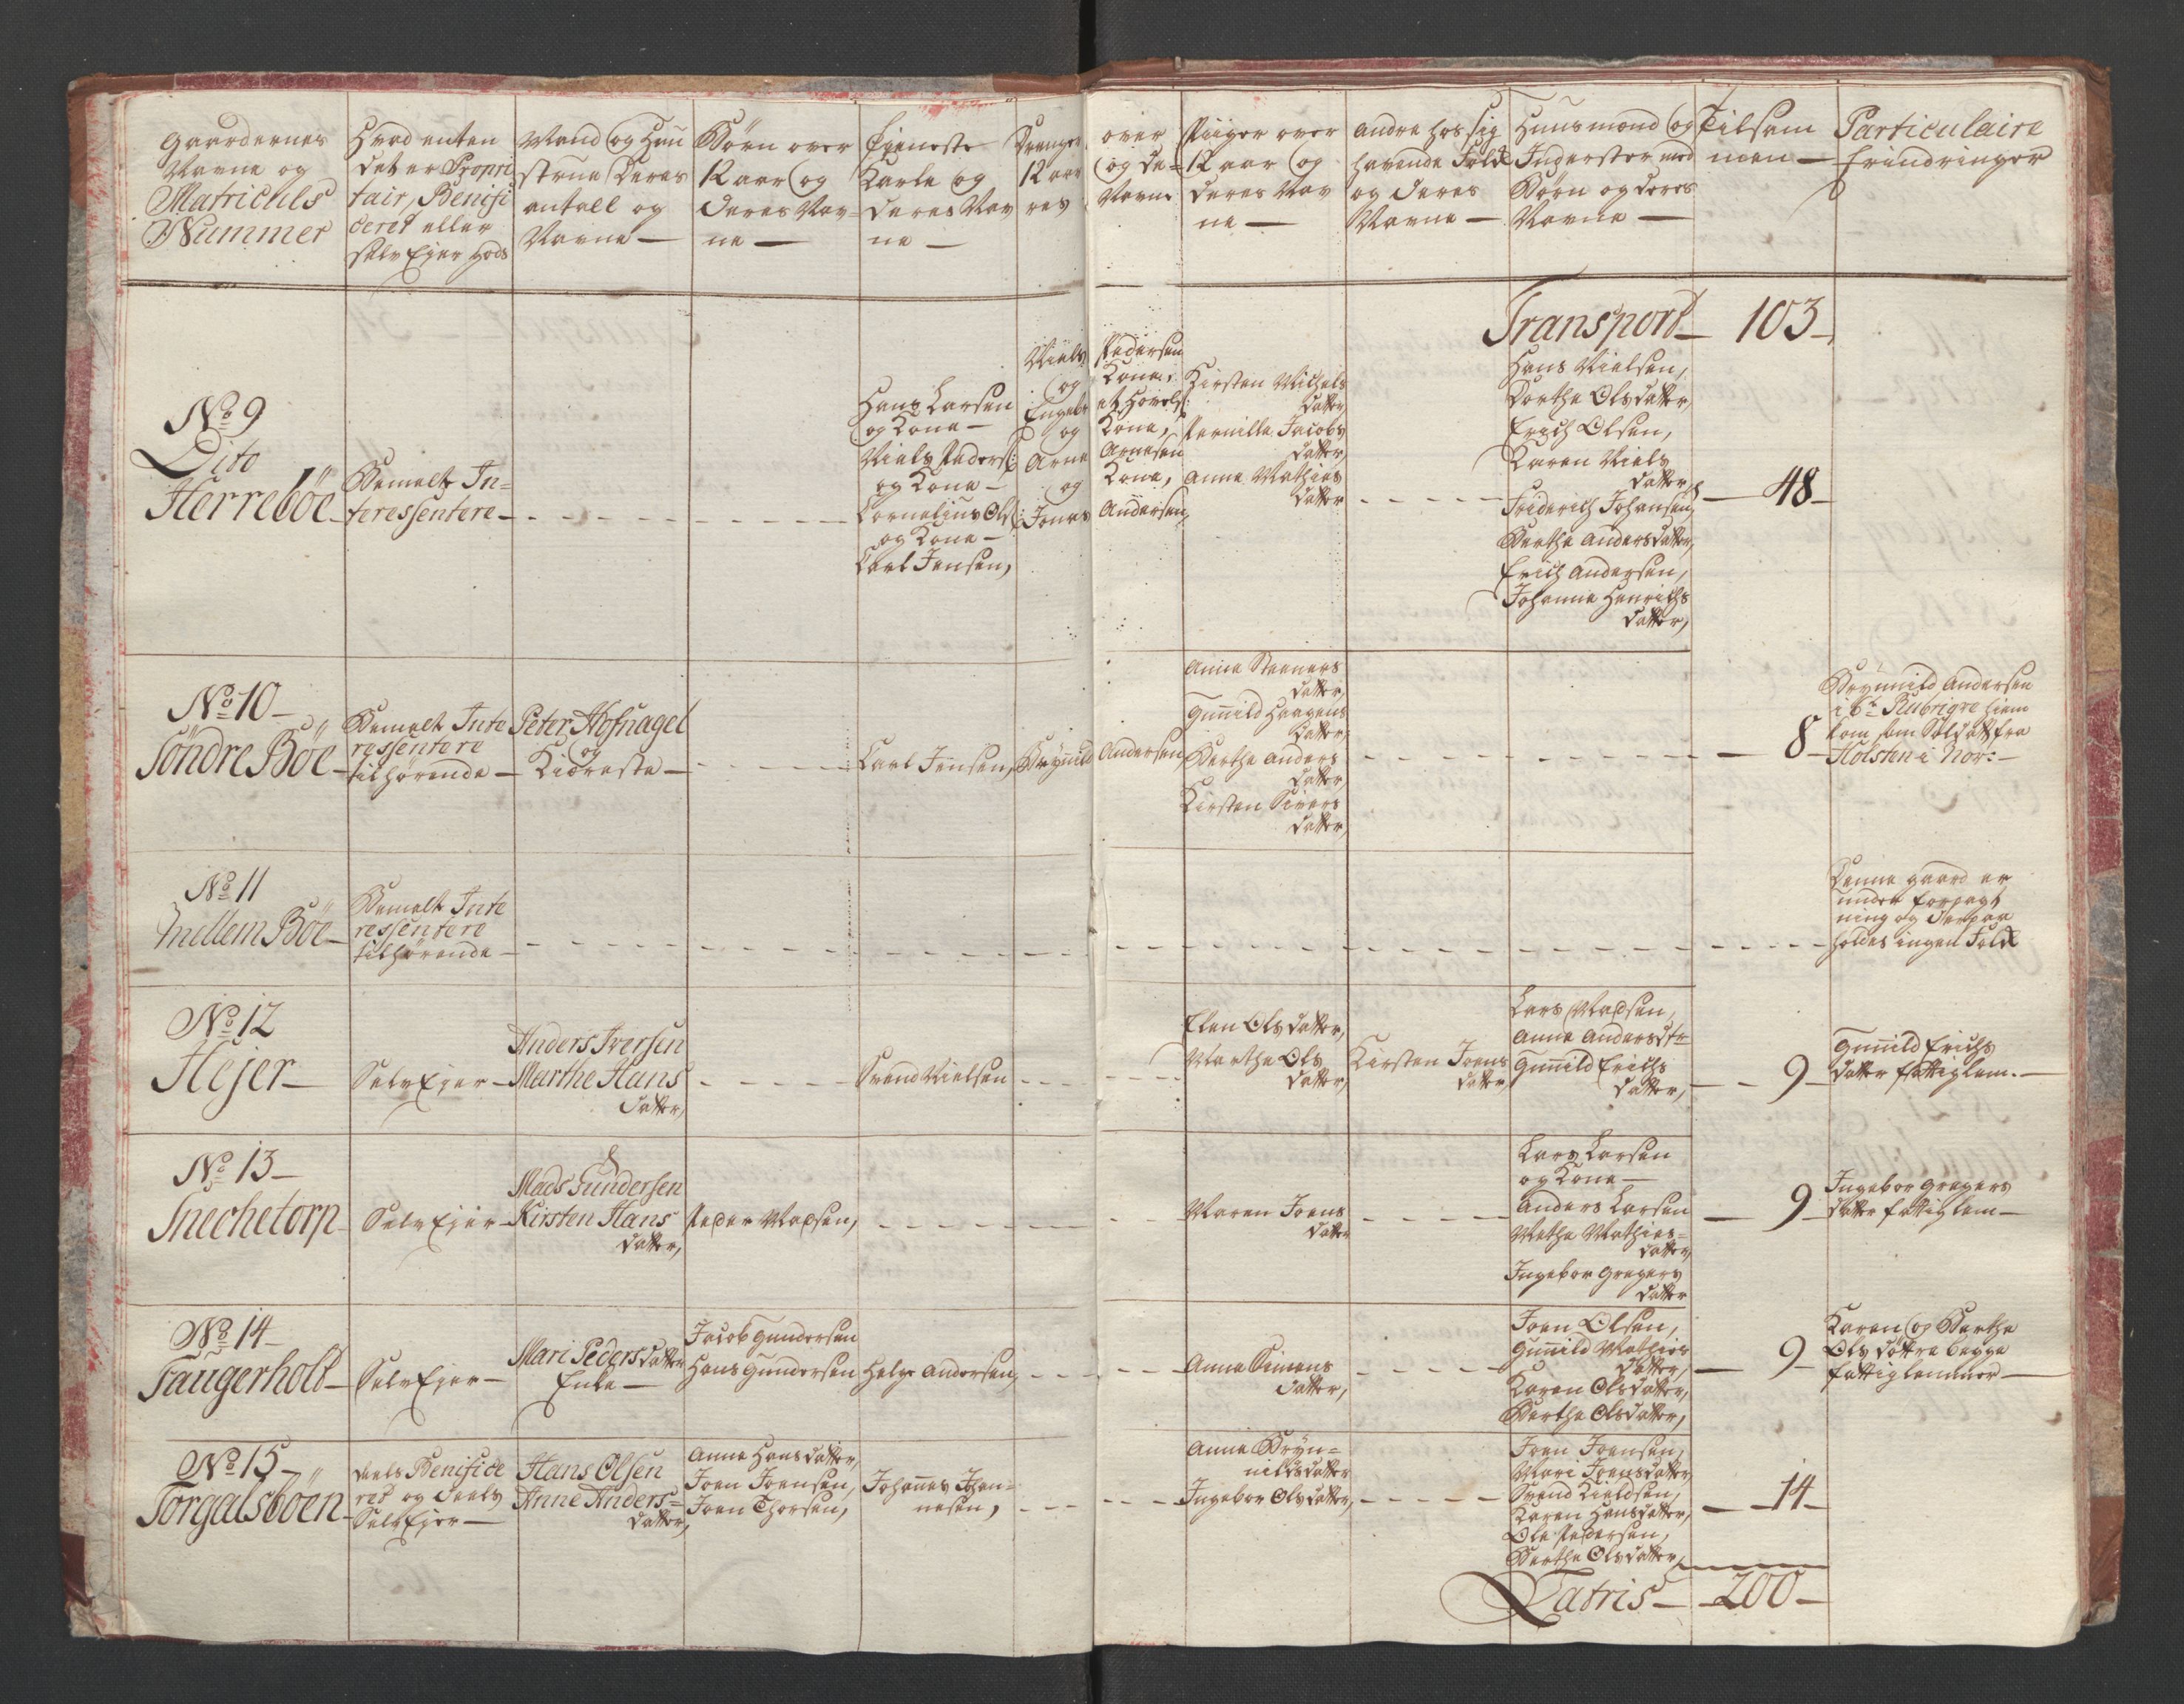 Gaardernes
Navne og
Matriculs
Nummer
Hvad enten
det er Propri
tair, Benifi
ceret eller
selv Ejer gods
Mand og Huu
strue Deres
antall og
Navne —
Børn over
12 aar og
deres Nav=
ne —
Tieneste
Karle og
deres Nav
ne —
Drenge over
12 aar og de=
res Navne
Piiger over
12 aar og
deres Nav
ne —
Andre hos sig
havende Folk
og deres
Navne —
Huusmænd og
Inderster med
Børn og deres
Navne —
Tilsam
men —
Particulaire
Erindringer
Transport — 103 —
No 9
Dito
Herreböe —
Bemelte In=
teressentere —
Hans Larsen
og Kone —
Niels Peders:
og Kone —
Cornelius Ols:
og Kone —
Carl Jensen,
Niels Pedersen
og Kone,
Engebret Hovels:
og Kone,
Arne Arnesen
og Kone,
Jonas Andersen,
Kirsten Michels
datter,
Pernille Jacobs
datter,
Anne Mathias
datter
Hans Nielsen,
Dorthe Olsdatter,
Erich Olsen,
Karen Niels
datter,
Friderich Johansen,
Berthe Andersdatter,
Erich Andersen,
Johanne Henrichs
datter,
— 48 —
No 10 —
Söndre Böe —
Bemelte Inte
ressentere
tilhørende —
Peter Hofnagel
og
Kiæreste —
Carl Jensen,
Brynild Andersen,
Anne Steeners
datter,
Gunnild Haagens
datter,
Berthe Anders
datter,
Kirsten Sivers
datter,
— 8 —
Brynnild Andersen
i 6te Rubrique hiem
kom som Soldat fra
Holsten i Nov: —
No 11
Mellem Böe —
Bemelte Inte
ressentere
tilhørende —
Denne gaard er
under forpagt
ning og derpaa
holdes ingen Folk
No 12
Hejer —
Selv Ejer —
Anders Iversen
Marthe Hans
datter,
Svend Nielsen
Elen Olsdatter,
Marthe Ols
datter,
Kirsten Joens
datter,
Lars Madsen,
Anne Andersdtr
Gunnild Erichs
datter,
— 9 —
Gunnild Erichs
datter fattiglem. —
No 13 —
Snechetorp —
Selv Ejer —
Mads Gundersen
Kirsten Hans
datter,
Peder Madsen,
Maren Joens
datter
Lars Larsen
og Kone —
Anders Larsen
Methe Mathias=
datter,
Ingebor Gregers
datter
— 9 —
Ingebor Gregers
datter fattiglem —
No 14 —
Taugerholt —
Selv Ejer —
Mari Pedersdatter
Enke —
Jacob Gundersen
Hans Gundersen
Helge Andersen,
Anne Simens
datter,
Joen Olsen,
Gunnild Mathias
datter,
Karen Olsdatter,
Berthe Olsdatter,
— 9 —
Karen og Berthe
Ols döttre begge
fattiglemmer —
No 15 —
Torgalsböen —
deels Benifice
ret og deels
Selv Ejer —
Hans Olsen
Anne Anders=
datter,
Anne Hansdatter,
Joen Joensen,
Joen Thorsen,
Johannes Johan=
nesen,
Anne Bryn=
nildsdatter
Ingebor Olsdatter,
Joen Joensen,
Mari Joensdatter,
Svend Kieldsen,
Karen Hansdatter,
Ole Pedersen,
Berthe Olsdatter,
— 14 —
Latris — 200 —